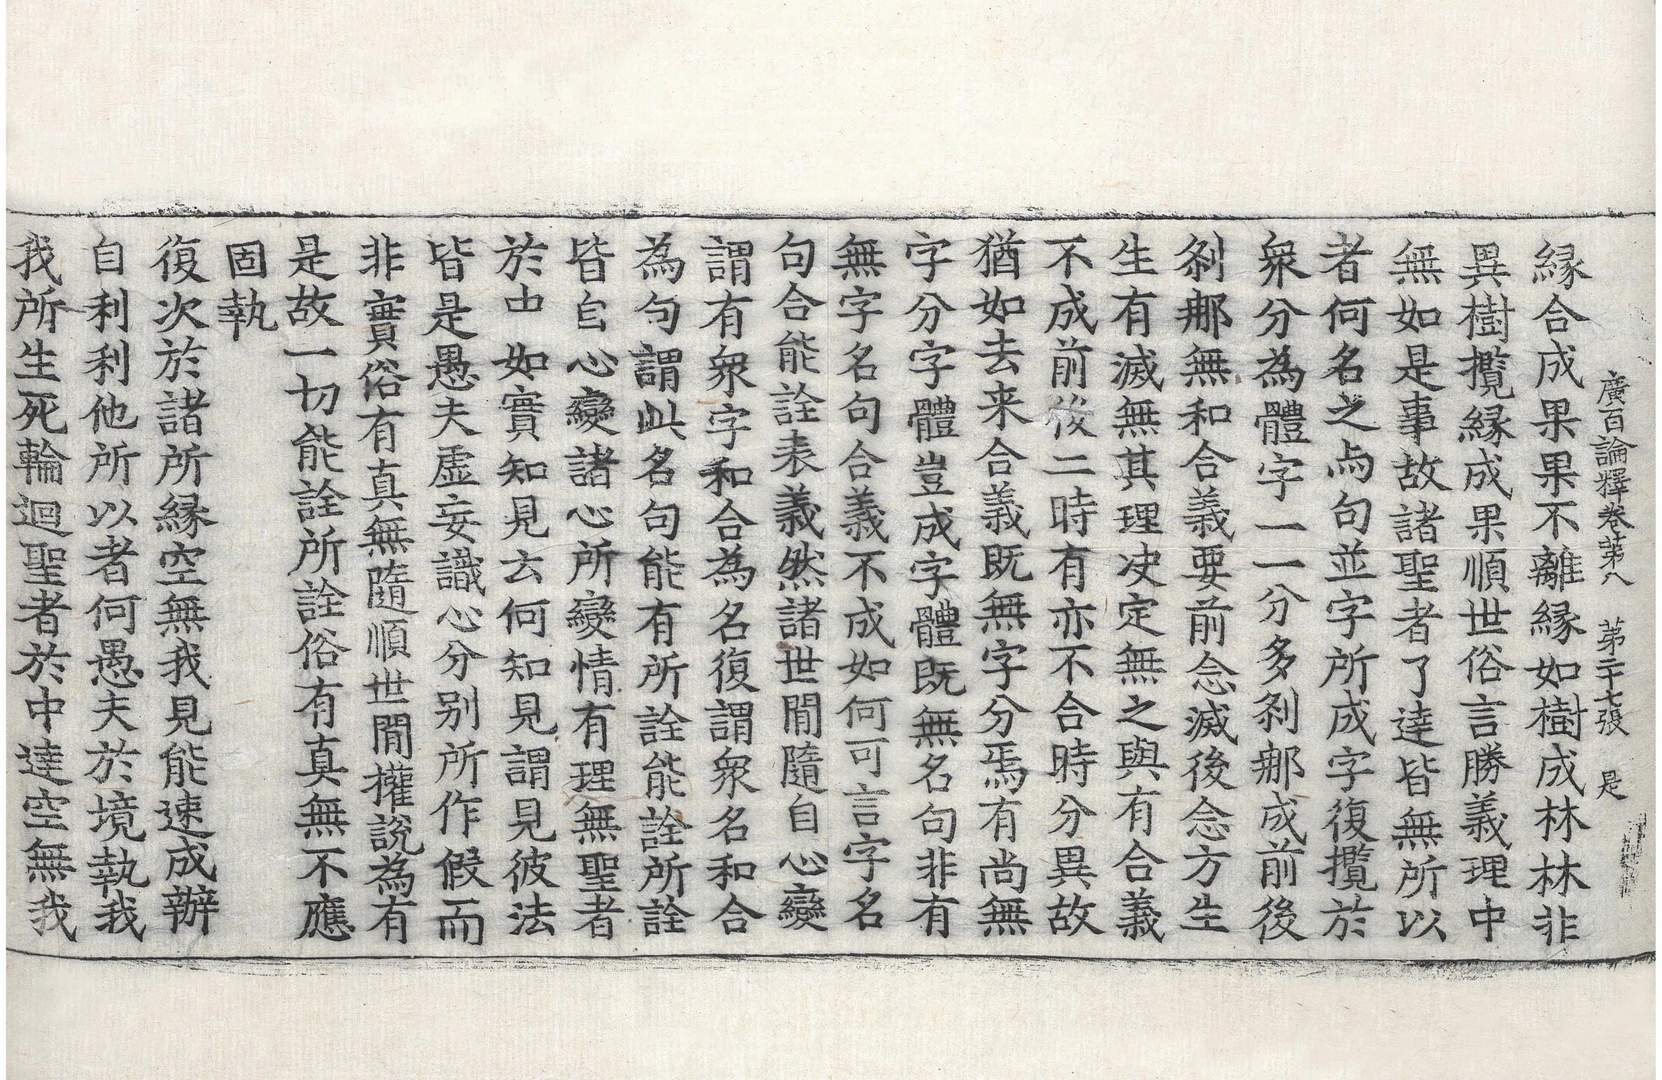 廣百論釋卷苐八 苐二十七張 是
縁合成果果不離縁如樹成林林非
異樹攬縁成果順世俗言勝義理中
無如是事故諸聖者了達皆無所以
者何名之与句並字所成字復攬於
衆分為體字一一分多刹那成前後
刹那無和合義要前念滅後念方生
生有滅無其理决定無之與有合義
不成前後二時有亦不合時分異故
猶如去来合義既無字分焉有尚無
字分字體豈成字體既無名句非有
無字名句合義不成如何可言字名
句合能詮表義然諸世閒隨自心變
謂有衆字和合為名復謂衆名和合
為句謂此名句能有所詮能詮所詮
皆自心變諸心所變情有理無聖者
於中如實知見云何知見謂見彼法
皆是愚夫虛妄識心分别所作假而
非實俗有真無隨順世閒攉說為有
是故一切能詮所詮俗有真無不應
固執
復次於諸所縁空無我見能速成辦
自利利他所以者何愚夫於境執我
我所生死輪迴聖者於中達空無我